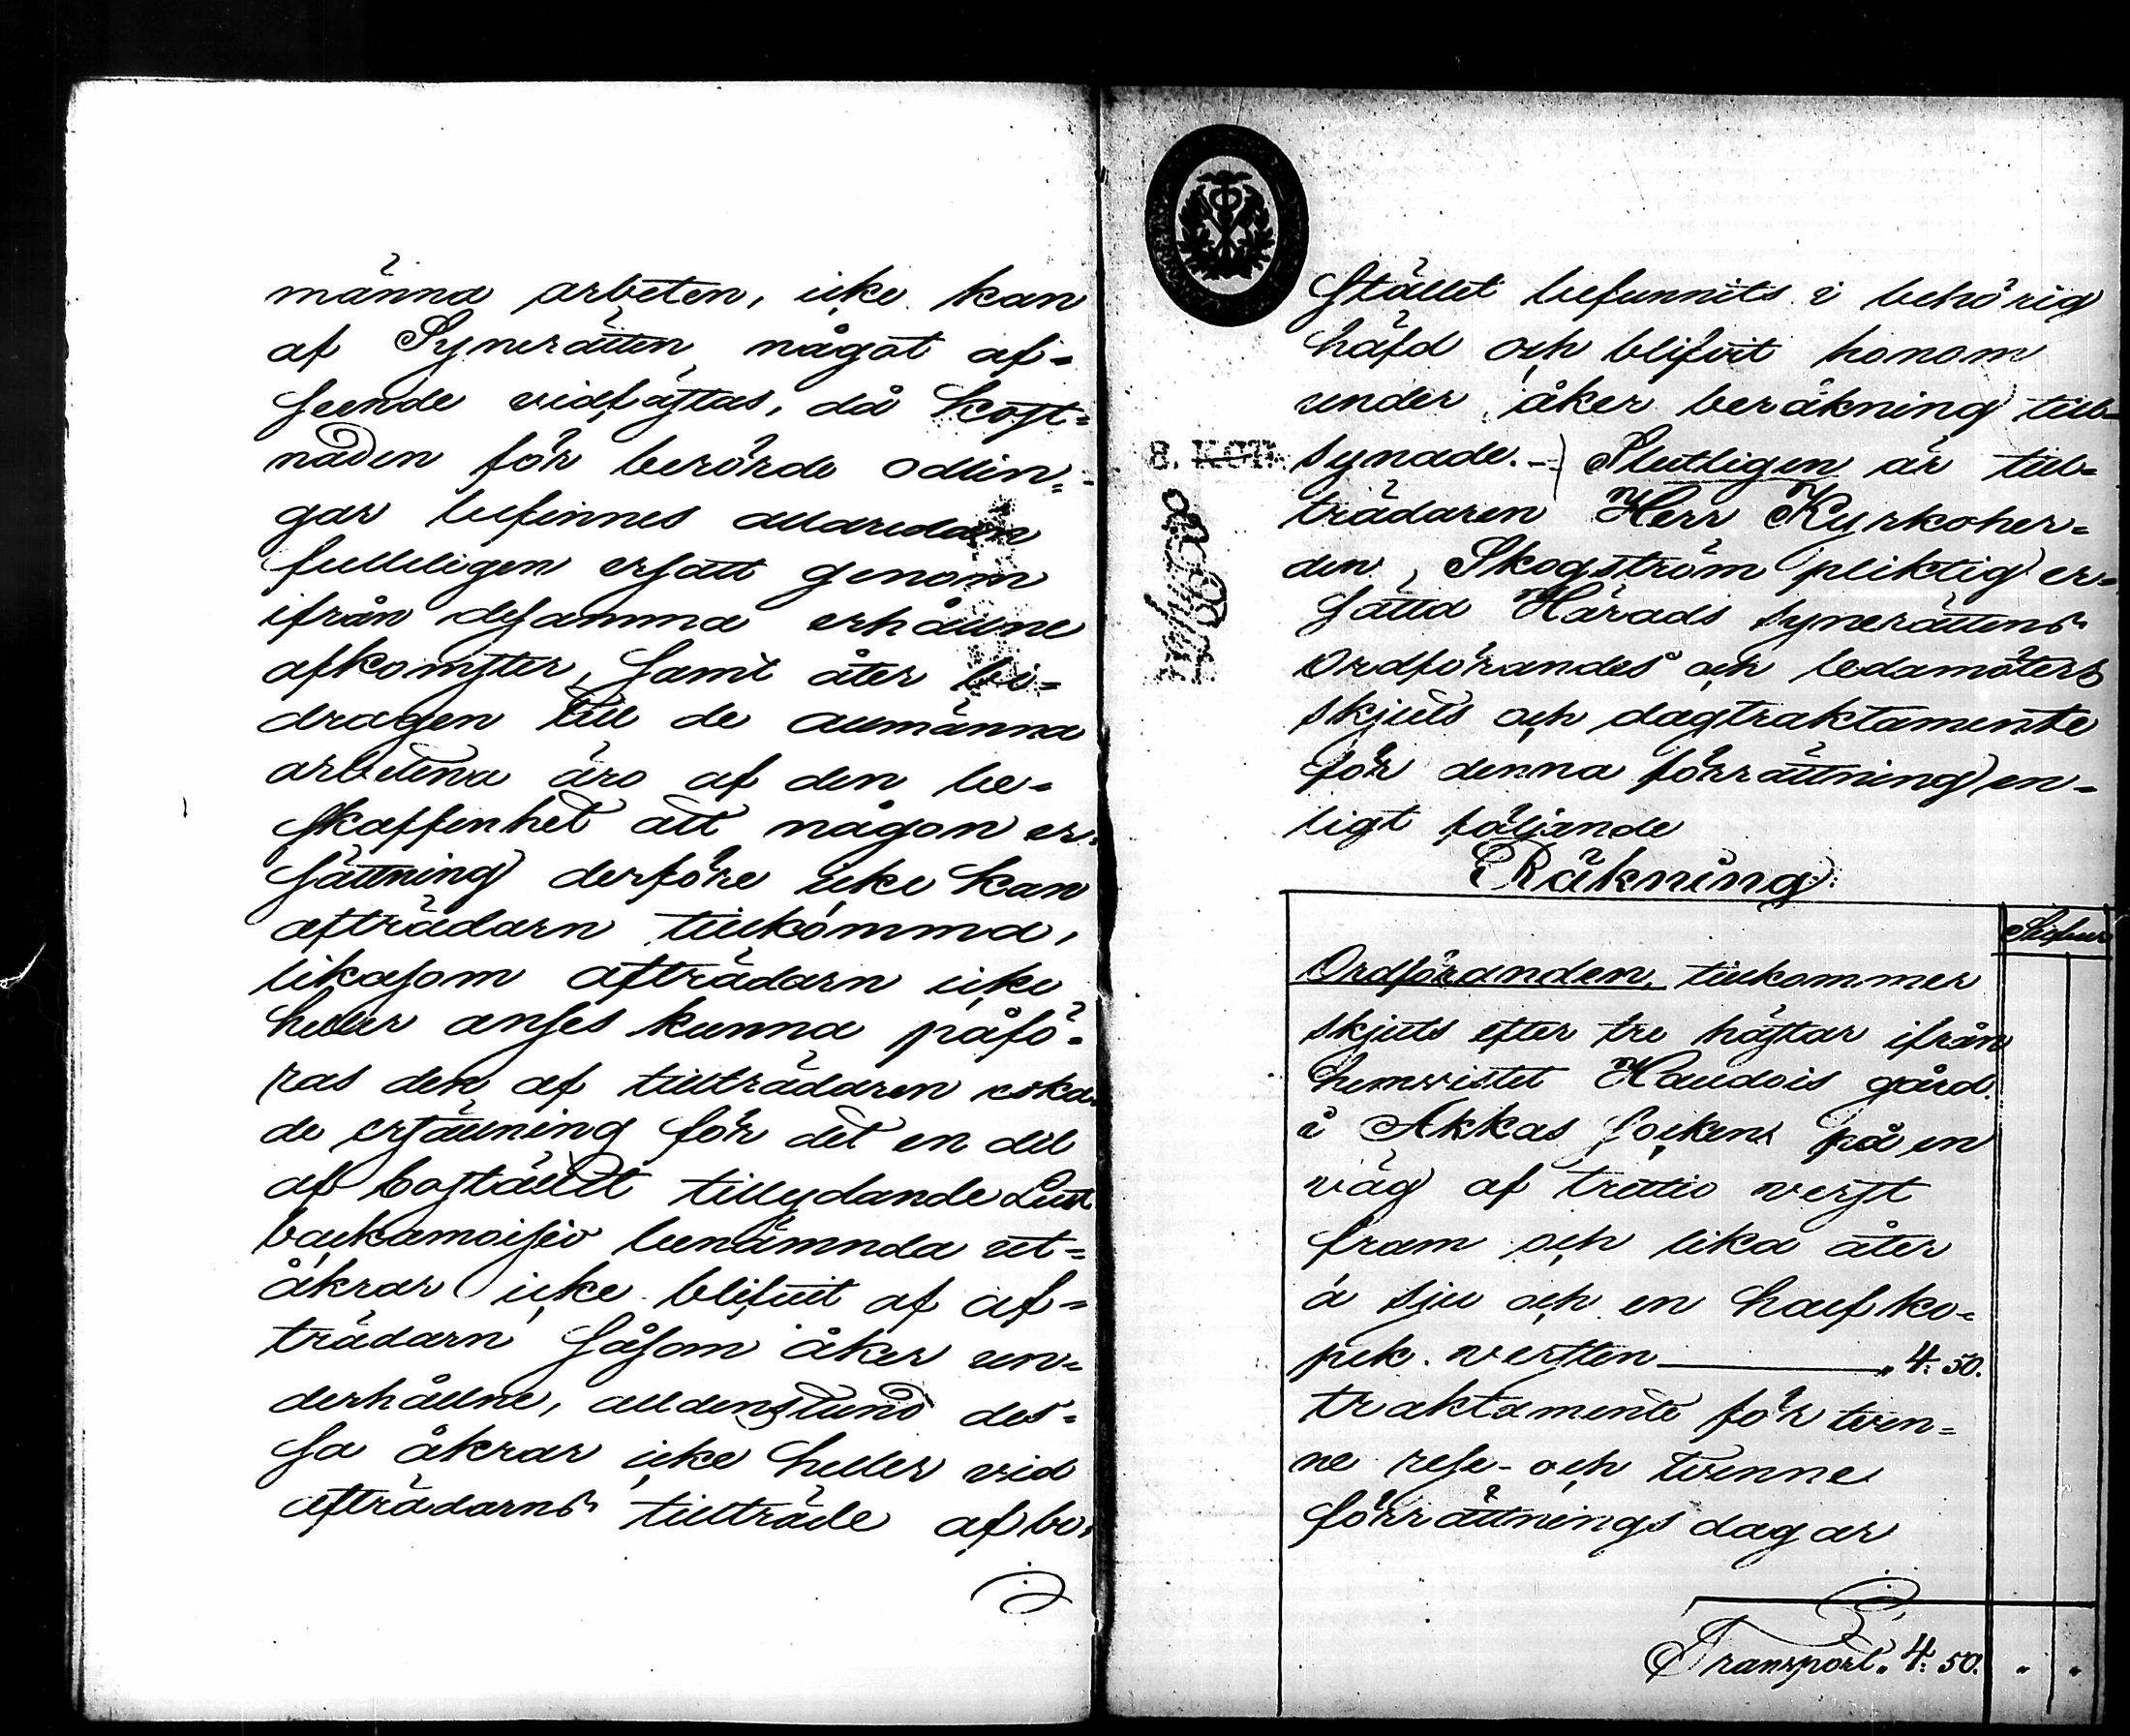 männa arbeten, icke kan
af Synerätten något af=
seende vidfästas, då kost=
naden för berörde odlin=
gar befinnes allaredan
fulleligen ersatt genom
ifrån desamma erhållne
afkomster, samt åter bi=
dragen till de allmänna
arbetena äro af den be=
skaffenhet att någon er=
sättning derföre icke kan
afträdarn tillkomma,
likasom afträdarn icke
heller anses kunna påfö=
ras den af tillträdaren yrka=
de ersättning för det en del
af bostället tillydande
benämnda ut=
åkrar icke blifvit af af=
trädarn såsom åker un=
derhållne, alldenstund des=
sa åkrar icke heller vid
afträdarns tillträde af bo=
stället befunnits i behörig
häfd och blifvit honom
under åker beräkning till=
8. KOP.
synade. — Slutligen är till=
trädaren Herr Kyrkoher=
den Skogström pliktig er=
sätta Härads Synerättens
Ordförandes och ledamöters
skjuts och dagtraktamente
för denna förrättning en=
ligt följande
Räkning:
Silfver
Ordföranden, tillkommer
skjuts efter tre hästar ifrån
hemvistet Haudois gård
i Akkas socken på en
väg af trettio verst
fram och lika åter
à sju och en half ko=
pek. versten — „ 4: 50.
traktamente för tven=
ne rese- och tvenne
förrättnings dagar
Transport „ 4: 50. „ „